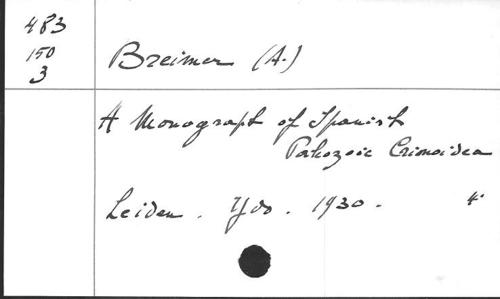 483
150
3
Breimer (A.)
A Monograph of Spanish
Palaeozoic Crinoidea
Leiden. Ydo. 1930.
4°